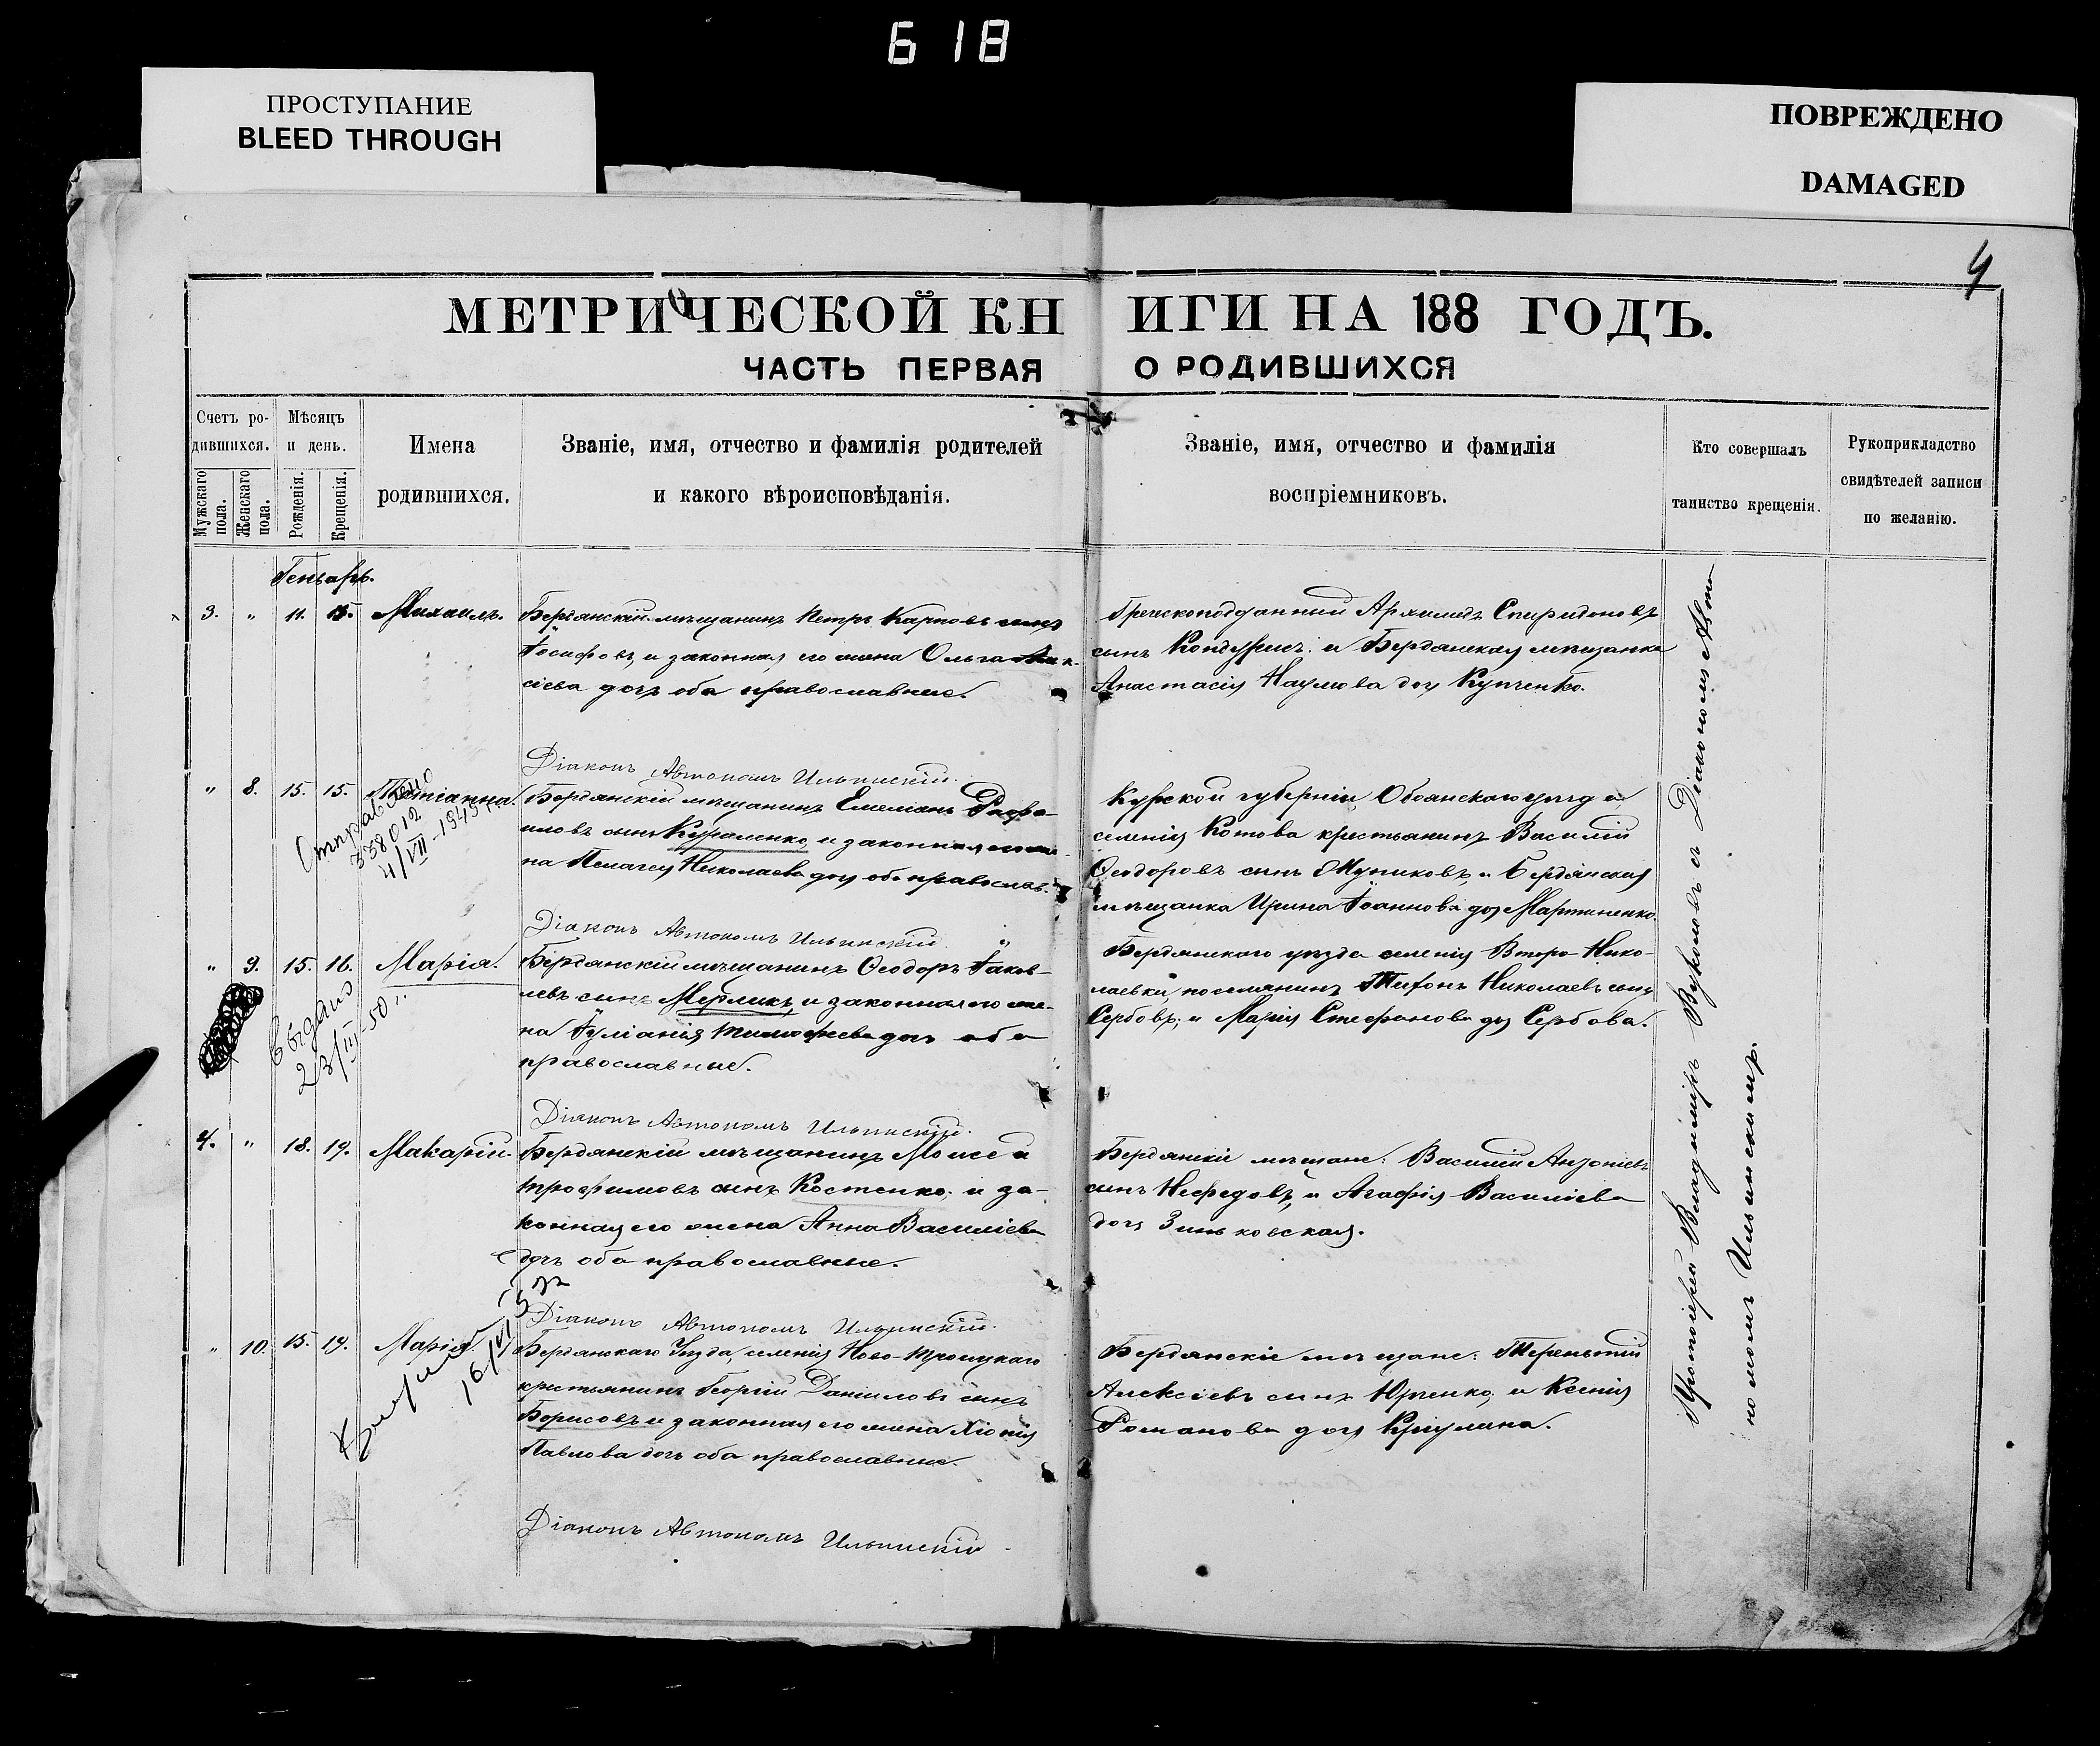 618
ПРОСТУПАНИЕ
BLEED THROUGH
ПОВРЕЖДЕНО
DAMAGED
4
МЕТРИЧЕСКОЙ КНИГИ НА 188 ГОДЪ.
ЧАСТЬ ПЕРВАЯ О РОДИВШИХСЯ
Счетъ ро-
дившихся.
Мужскаго пола.
Женскаго пола.
Мѣсяцъ
и день.
Рожденія.
Крещенія.
Имена
родившихся.
Званіе, имя, отчество и фамилія родителей
и какого вѣроисповѣданія.
Званіе, имя, отчество и фамилія
воспріемниковъ.
Кто совершалъ
таинство крещенія.
Рукоприкладство
свидѣтелей записи
по желанію.
Генварь.
3. " 11. 15. Михаилъ.
Бердянскій мѣщанинъ Петръ Карповъ сынъ
Іосифовъ, и законная его жена Ольга
сіева дочь оба православные.
Греческоподданный Архимедъ Спиридоновъ
сынъ и Бердянская мѣщанка
Анастасія Наумова дочь Купченко.
Діаконъ Автономъ Ильинскій.
" 8. 15. 15. Татіанна.
Отправлено
338012
4/VII-1945
Бердянскій мѣщанинъ Емеліанъ Рафа-
иловъ сынъ Кураленко, и законная его же-
на Пелагея Николаева дочь оба православ.
Курской губерніи Обоянскаго уѣзда
селенія Котова крестьянинъ Василій
Ѳеодоровъ сынъ и Бердянская
мѣщанка Ирина Іоаннова дочь Мартиненко.
Діаконъ Автономъ Ильинскій.
" 9. 15. 16. Марія.
выдано
23/III-50
Бердянскій мѣщанинъ Ѳеодоръ Іаков-
левъ сынъ Мерликъ, и законная его же-
на Іуліанія Тимофеева дочь оба
православные.
Бердянскаго уѣзда селенія Второ-Нико-
лаевки, поселянинъ Тихонъ Николаевъ сынъ
Сербовъ; и Марія Стефанова дочь Сербова.
Діаконъ Автономъ Ильинскій.
4. " 18. 19. Макарій.
Бердянскій мѣщанинъ Моисей
Трофимовъ сынъ Костенко, и за-
конная его жена Анна Василіева
дочь оба православные.
Бердянскіе мѣщане: Василій Антоніевъ
сынъ Нефедовъ, и Агафія Василіева
дочь Зиньковская.
Діаконъ Автономъ Ильинскій.
" 10. 15. 19. Марія.
16/VI
Бердянскаго Уѣзда, селенія Ново-Троицкаго
крестьянинъ Георгій Даніиловъ сынъ
Борисовъ и законная его жена Хіонія
Павлова дочь оба православные.
Бердянскіе мѣщане: Терентій
Алексіевъ сынъ Юрченко, и Ксенія
Романова дочь
Діаконъ Автономъ Ильинскій
Протоіерей Владиміръ Вуколовъ съ Діакономъ Авто-
номомъ Ильинскимъ.